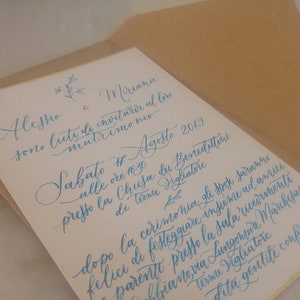 Alessio & Miriana
sono lieti di invitarvi al loro
matrimonio
Sabato Agosto 2019
alle ore
presso la Chiesa dei Benedettini
di Terme Vigliatore
dopo la cerimonia gli sposi saranno
felici di festeggiare insieme ad amici
e parenti presso la sala ricevimenti
via Lungomare Marchesana
Terme Vigliatore
gentile